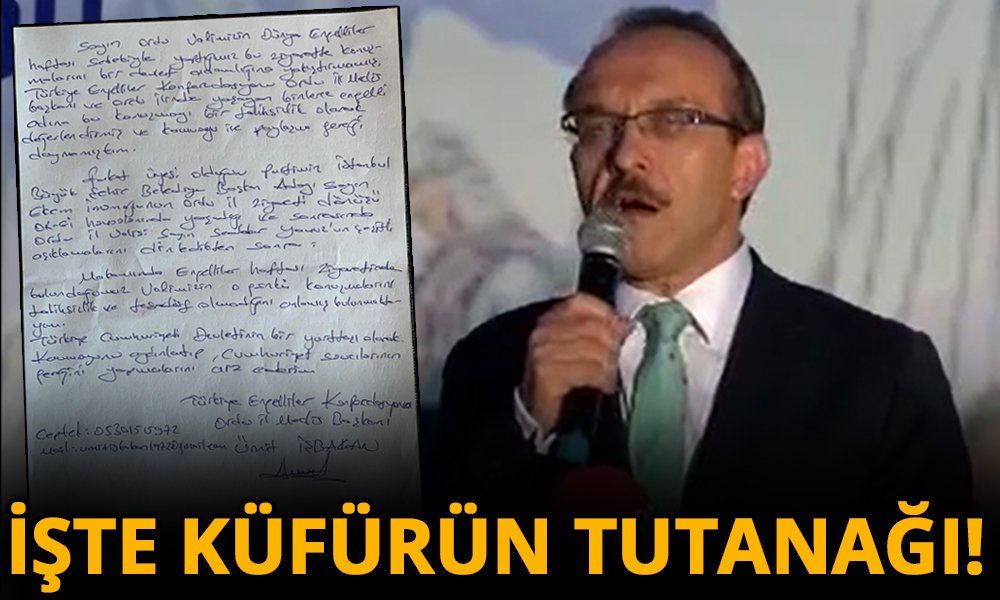 Sayın Ordu Valimizin Dünya Engelliler
haftası sebebiyle yaptığımız bu ziyarette konuş-
malarını bir devlet adamlığına yakıştıramamış
Türkiye Engelliler Konfederasyonu Ordu İl Meclis
başkanı ve ordu ilinde yaşayan binlerce engelli
Adına bu konuşmayı bir talihsizlik olarak
değerlendirmiş ve kamuoyu ile paylaşma gereği
duymamıştım.
Fakat üyesi olduğum partimin İstanbul
Büyük Şehir Belediye Başkan Adayı Sayın
Ekrem İmamoğunun Ordu il ziyareti dönüşü
Or-Gi havaalanında yaşadığı ve sonrasında
Ordu il Valisi Sayın Seddar Yavuz'un çeşitli
açıklamalarını dinledikten sonra:
Makamında Engelliler haftası ziyaretinde
bulunduğumuz Valimizin o günkü konuşmalarını
talihsizlik ve tesadüf olmadığını anlamış bulunmakta-
yım.
Türkiye Cumhuriyeti Devletinin bir yurttaşı olarak
Kamuoyunu aydınlatıp, Cumhuriyet savcılarının
gereğini yapmalarını arz ederim
Türkiye Engelliler Konfederasyonu
Ordu İl Meclis Başkanı
Ümit İŞBAKAN
İŞTE KÜFÜRÜN TUTANAĞI!